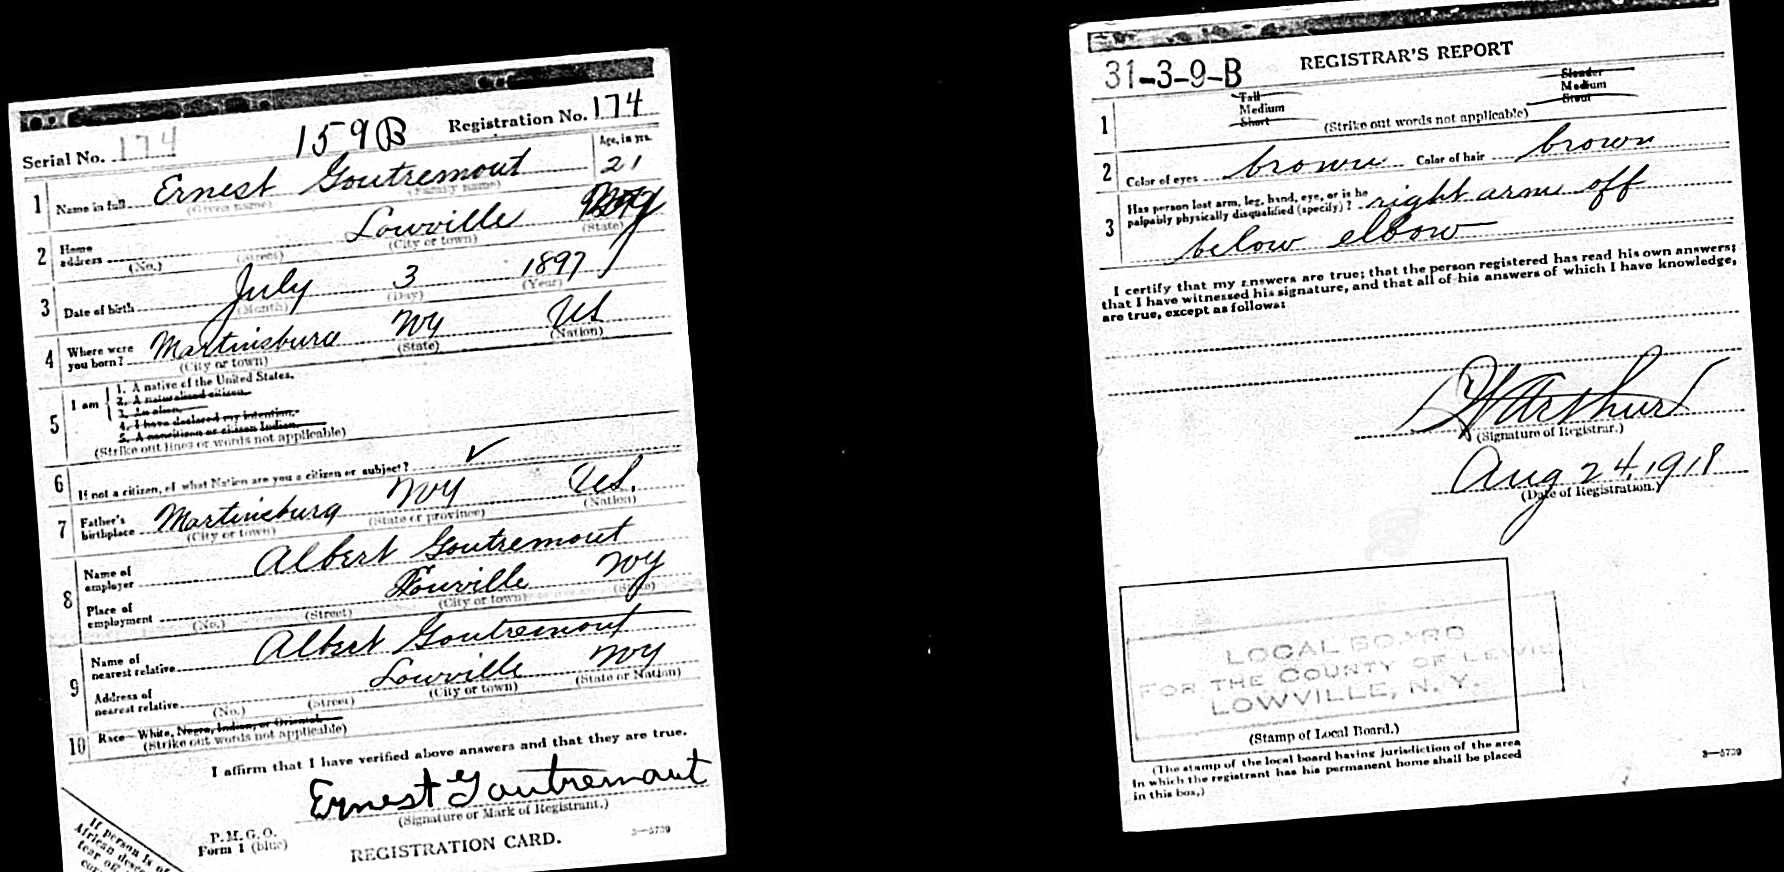 Serial No. 174
159 B
Registration No. 174
Age, in yrs.
1 Name in full Ernest Goutremout 21
(Given name) (Family name)
2 Home address Lowville NY
(No.) (Street) (City or town) (State)
3 Date of birth July 3 1897
(Month) (Day) (Year)
4 Where were you born? Martinsburg NY US
(City or town) (State) (Nation)
5 I am
1. A native of the United States.
2. A naturalized citizen.
3. An alien.
4. I have declared my intention.
5. A noncitizen or citizen Indian.
(Strike out lines or words not applicable)
6 If not a citizen, of what Nation are you a citizen or subject? ✓
7 Father's birthplace Martinsburg NY US.
(City or town) (State or province) (Nation)
8 Name of employer Albert Goutremout
Place of employment Lowville NY
(No.) (Street) (City or town) (State)
9 Name of nearest relative Albert Goutremout
Address of nearest relative Lowville NY
(No.) (Street) (City or town) (State or Nation)
10 Race—White, Negro, Indian, or Oriental.
(Strike out words not applicable)
I affirm that I have verified above answers and that they are true.
Ernest Goutremout
(Signature or Mark of Registrant.)
P. M. G. O.
Form 1 (blue)
REGISTRATION CARD.
3—5729
If person is of
African desc
tear off
cor
31-3-9-B
REGISTRAR'S REPORT
1 Tall Slender
Medium Medium
Short Stout
(Strike out words not applicable)
2 Color of eyes brown Color of hair brown
3 Has person lost arm, leg, hand, eye, or is he
palpably physically disqualified (specify)? right arm off
below elbow
I certify that my answers are true; that the person registered has read his own answers;
that I have witnessed his signature, and that all of his answers of which I have knowledge,
are true, except as follows:
Arthur
(Signature of Registrar.)
Aug 24, 1918
(Date of Registration.)
LOCAL BOARD
FOR THE COUNTY OF LEWIS
LOWVILLE, N. Y.
(Stamp of Local Board.)
(The stamp of the local board having jurisdiction of the area
in which the registrant has his permanent home shall be placed
in this box.)
3—5729